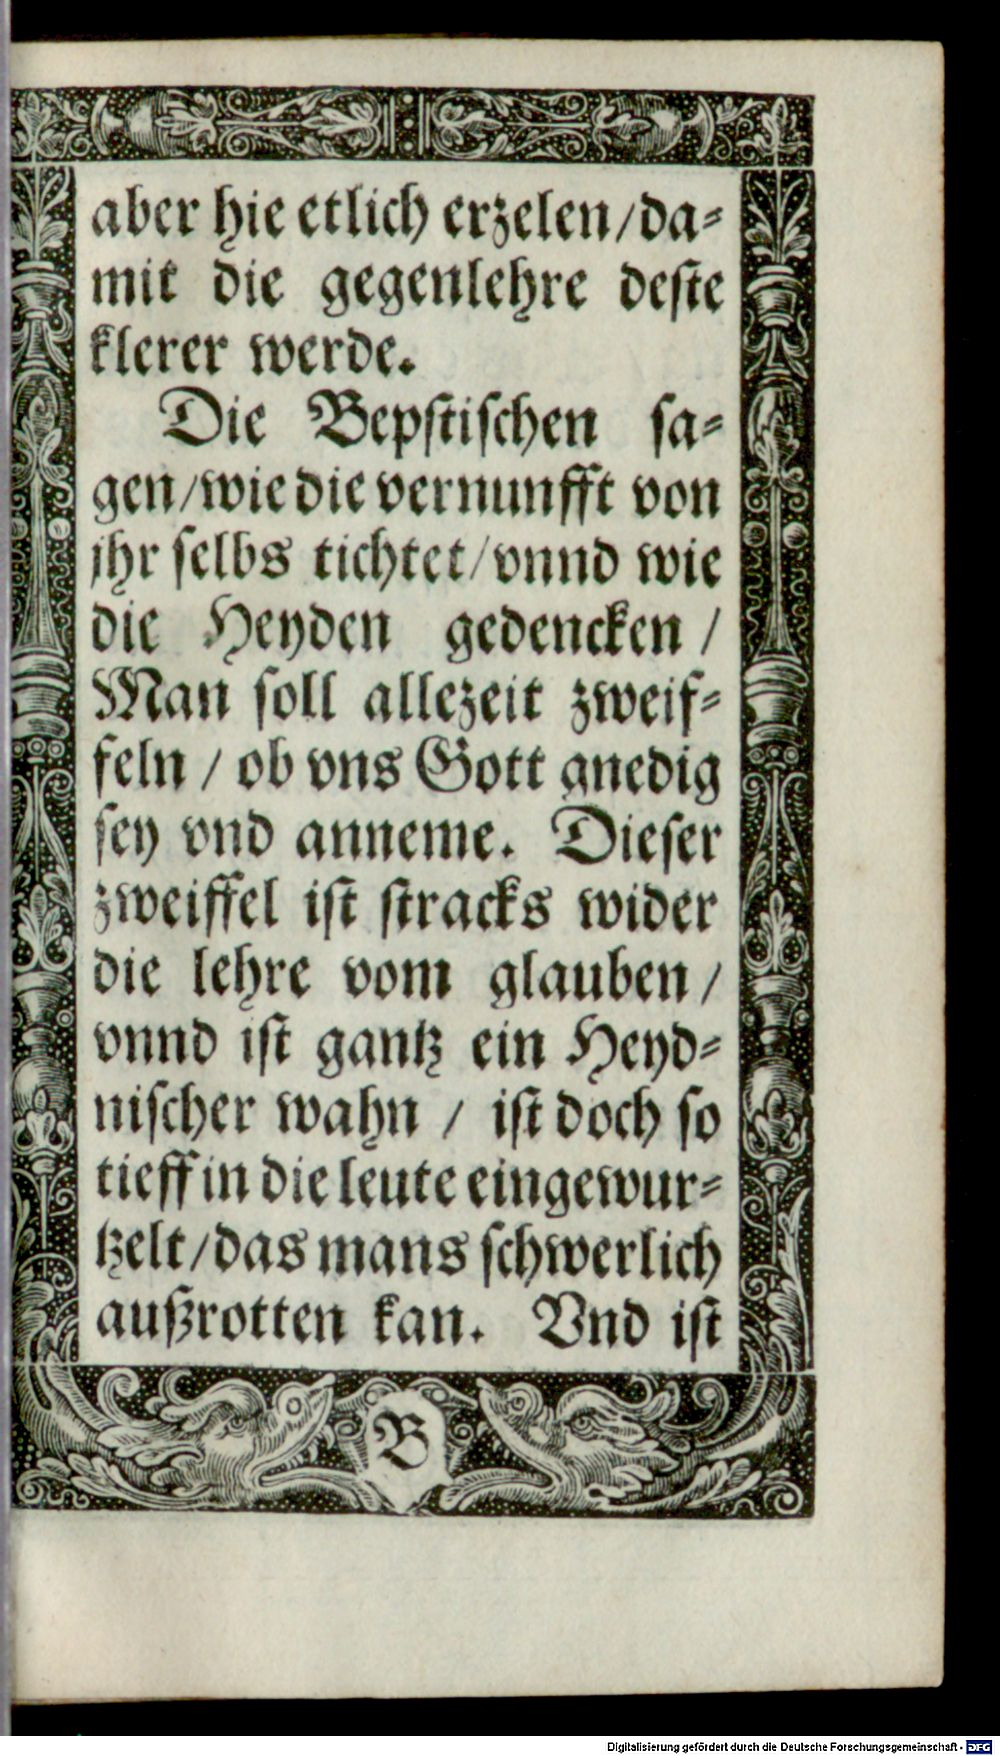 aber hie etlich erzelen/da⸗
mit die gegenlehre deste
klerer werde.
Die Bepstischen sa⸗
gen/wie die vernunfft von
jhr selbs tichtet/vnnd wie
die Heyden gedencken /
Man soll allezeit zweif⸗
feln / ob vns Gott gnedig
sey vnd anneme. Dieser
zweiffel ist stracks wider
die lehre vom glauben /
vnnd ist gantz ein Heyd⸗
nischer wahn / ist doch so
tieff in die leute eingewur⸗
tzelt/das mans schwerlich
außrotten kan. Vnd ist
B
Digitalisierung gefördert durch die Deutsche Forschungsgemeinschaft - DFG